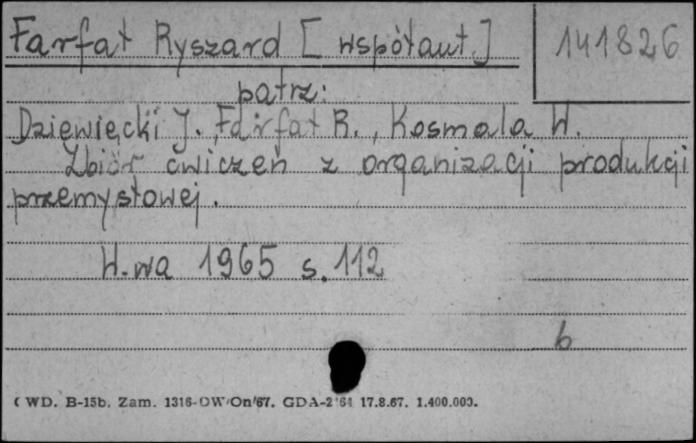 Farfał Ryszard [współaut.] 141826
patrz:
Dziewięcki J. Farfał R., Kosmala W.
Zbiór ćwiczeń z organizacji produkcji
przemysłowej.
W-wa 1965 s. 112
b
CWD. B-15b. Zam. 1316-OW/On/67. GDA-2/64 17.8.67. 1.400.000.